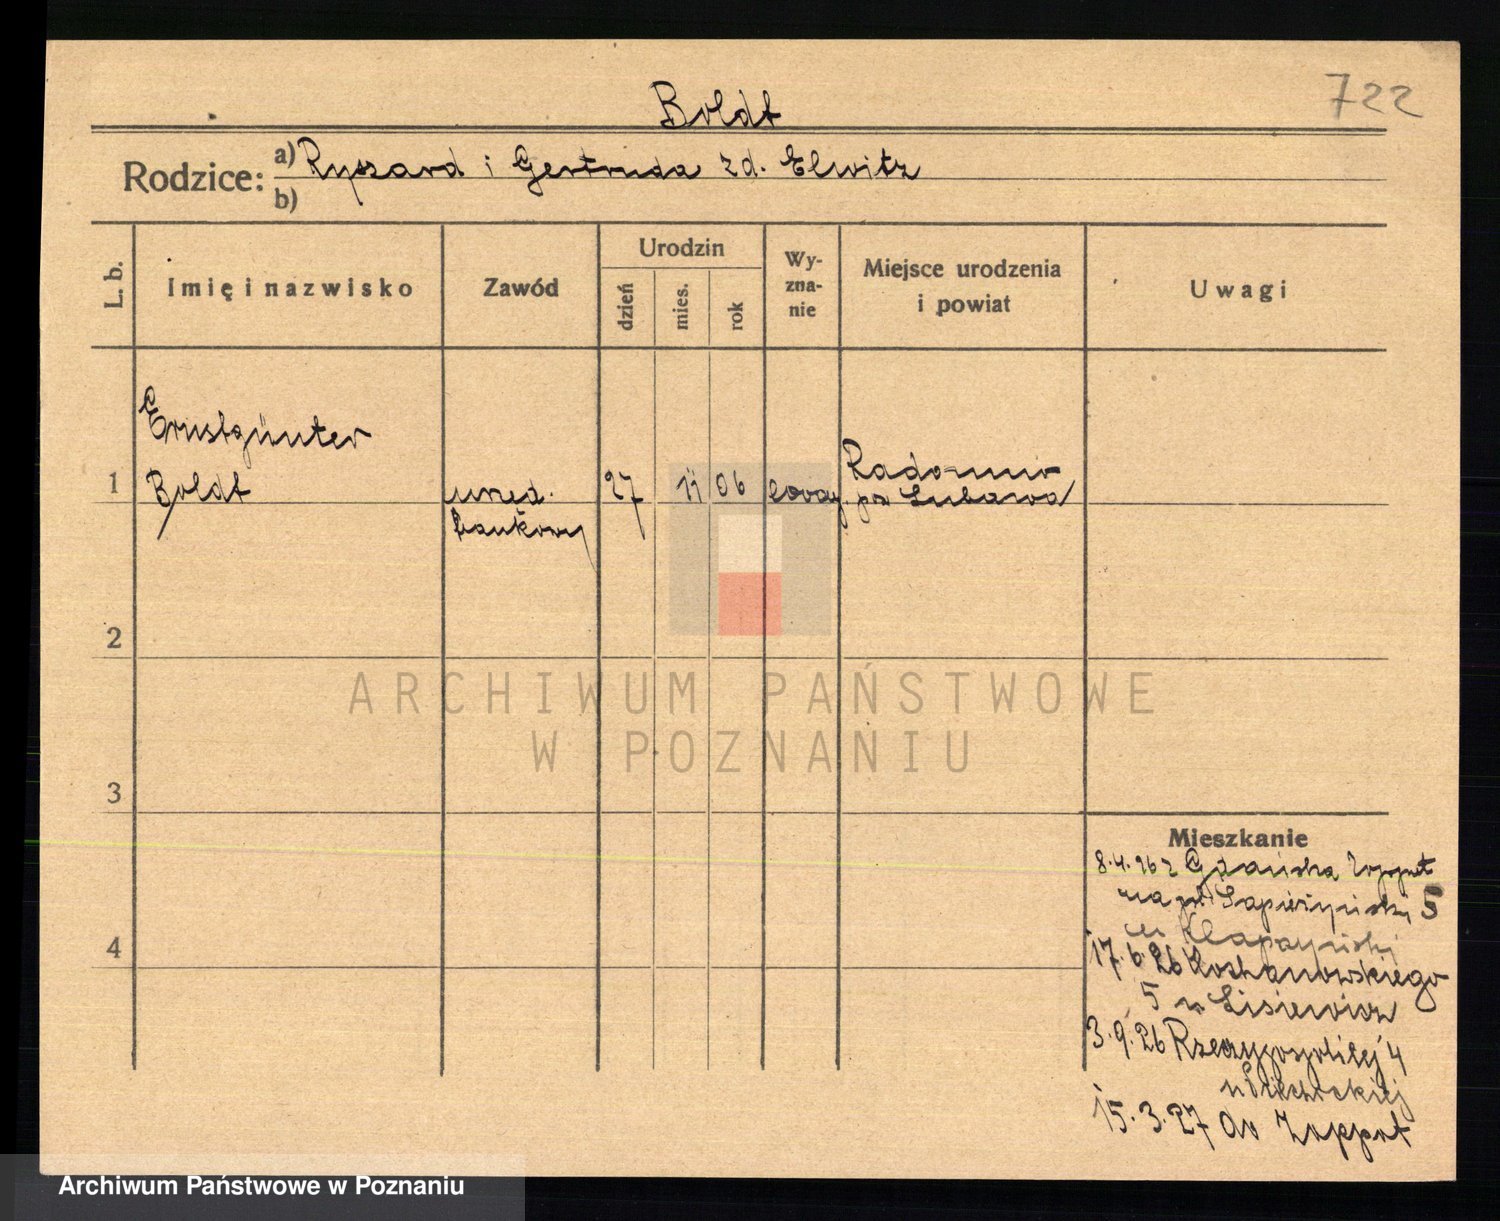 722
Boldt
Rodzice: a) Ryszard i Gertruda zd. Elwitz
b)
L. b.
Imię i nazwisko
Zawód
Urodzin
dzień
mies.
rok
Wy-
zna-
nie
Miejsce urodzenia
i powiat
Uwagi
Ernstgünter
1 Boldt
urzęd.
bankowy
27 11 06
ewag
Radomno
pw Lubawa
2
3
4
ARCHIWUM PAŃSTWOWE
W POZNANIU
Mieszkanie
8.4.26 z Gdańska Zoppot
na pl Sapieżyński 5
u
17.6.26 Kochanowskiego
5 u Lisiewicz
3.9.26 Rzeczypospolitej 4
u
15.3.27 do Zoppot
Archiwum Państwowe w Poznaniu